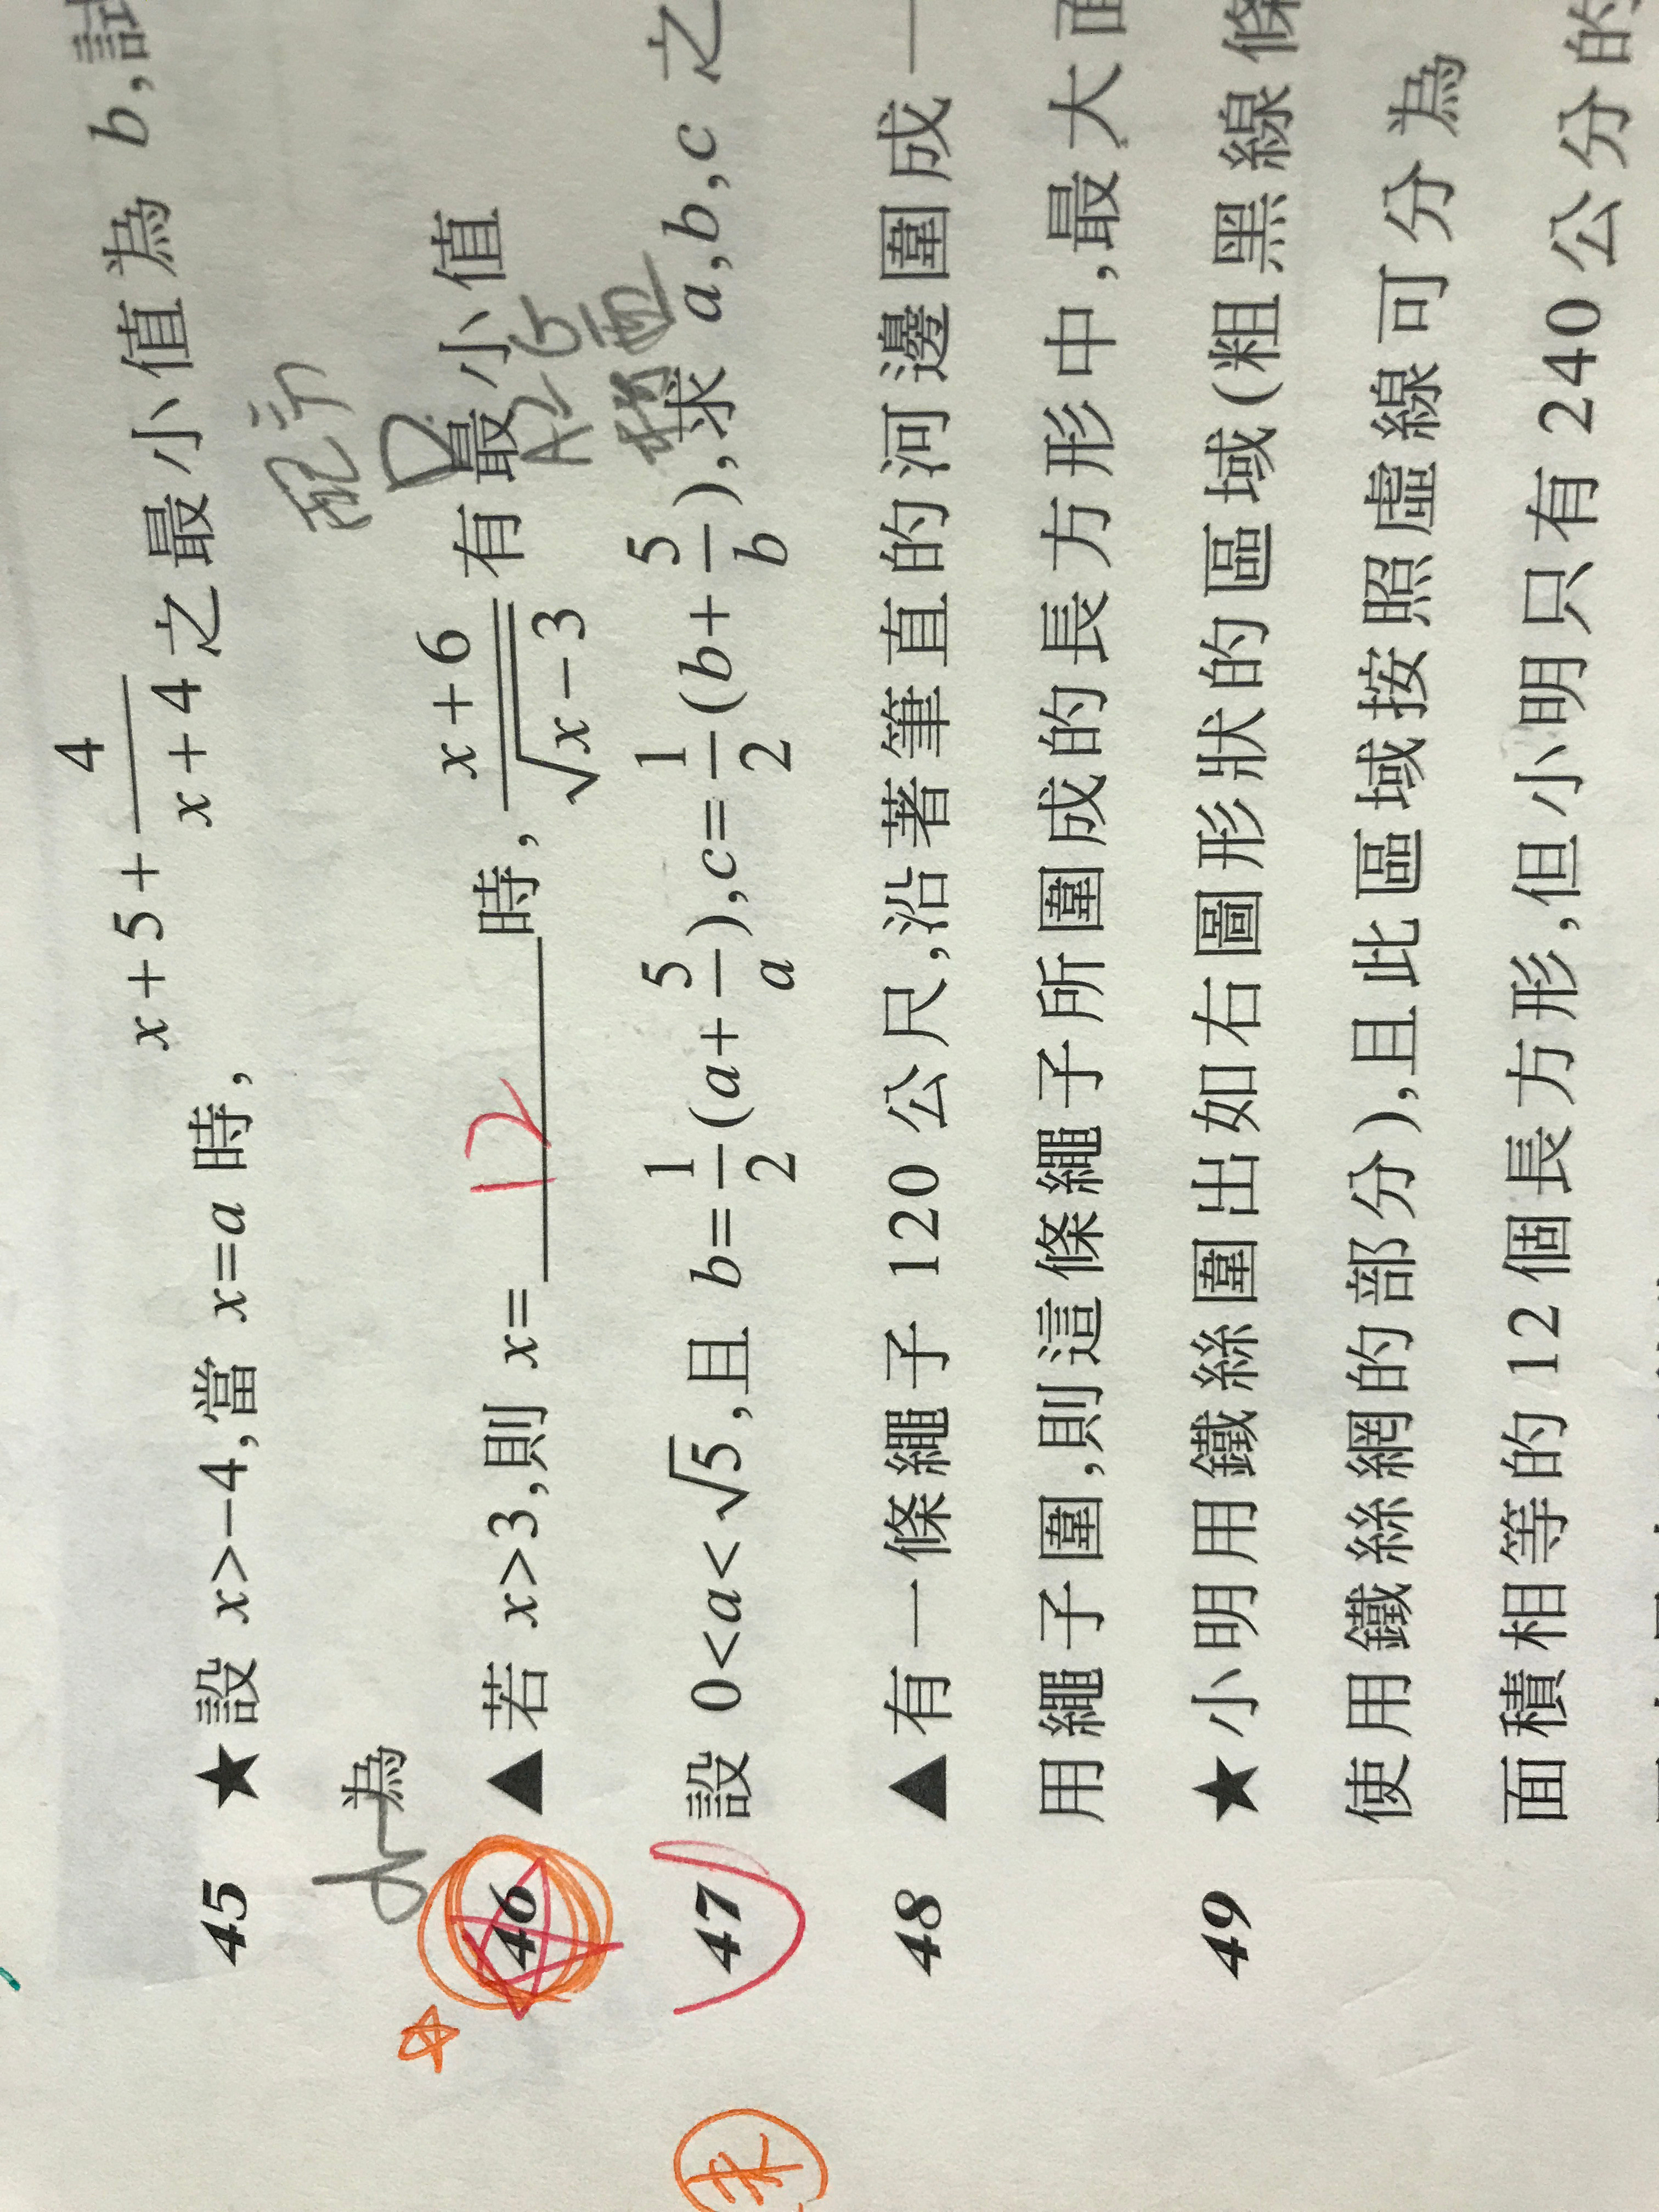 45 ★設 x>−4,當 x=a 時, x+5+4/(x+4) 之最小值為 b,試
為
配方
46 ▲若 x>3,則 x= 12 時, (x+6)/√(x−3) 有最小值
47 設 0<a<√5,且 b=1/2(a+5/a),c=1/2(b+5/b),求 a,b,c 之
48 ▲有一條繩子 120 公尺,沿著筆直的河邊圍成一
用繩子圍,則這條繩子所圍成的長方形中,最大面
49 ★小明用鐵絲圍出如右圖形狀的區域(粗黑線條
使用鐵絲網的部分),且此區域按照虛線可分為
面積相等的 12 個長方形,但小明只有 240 公分的